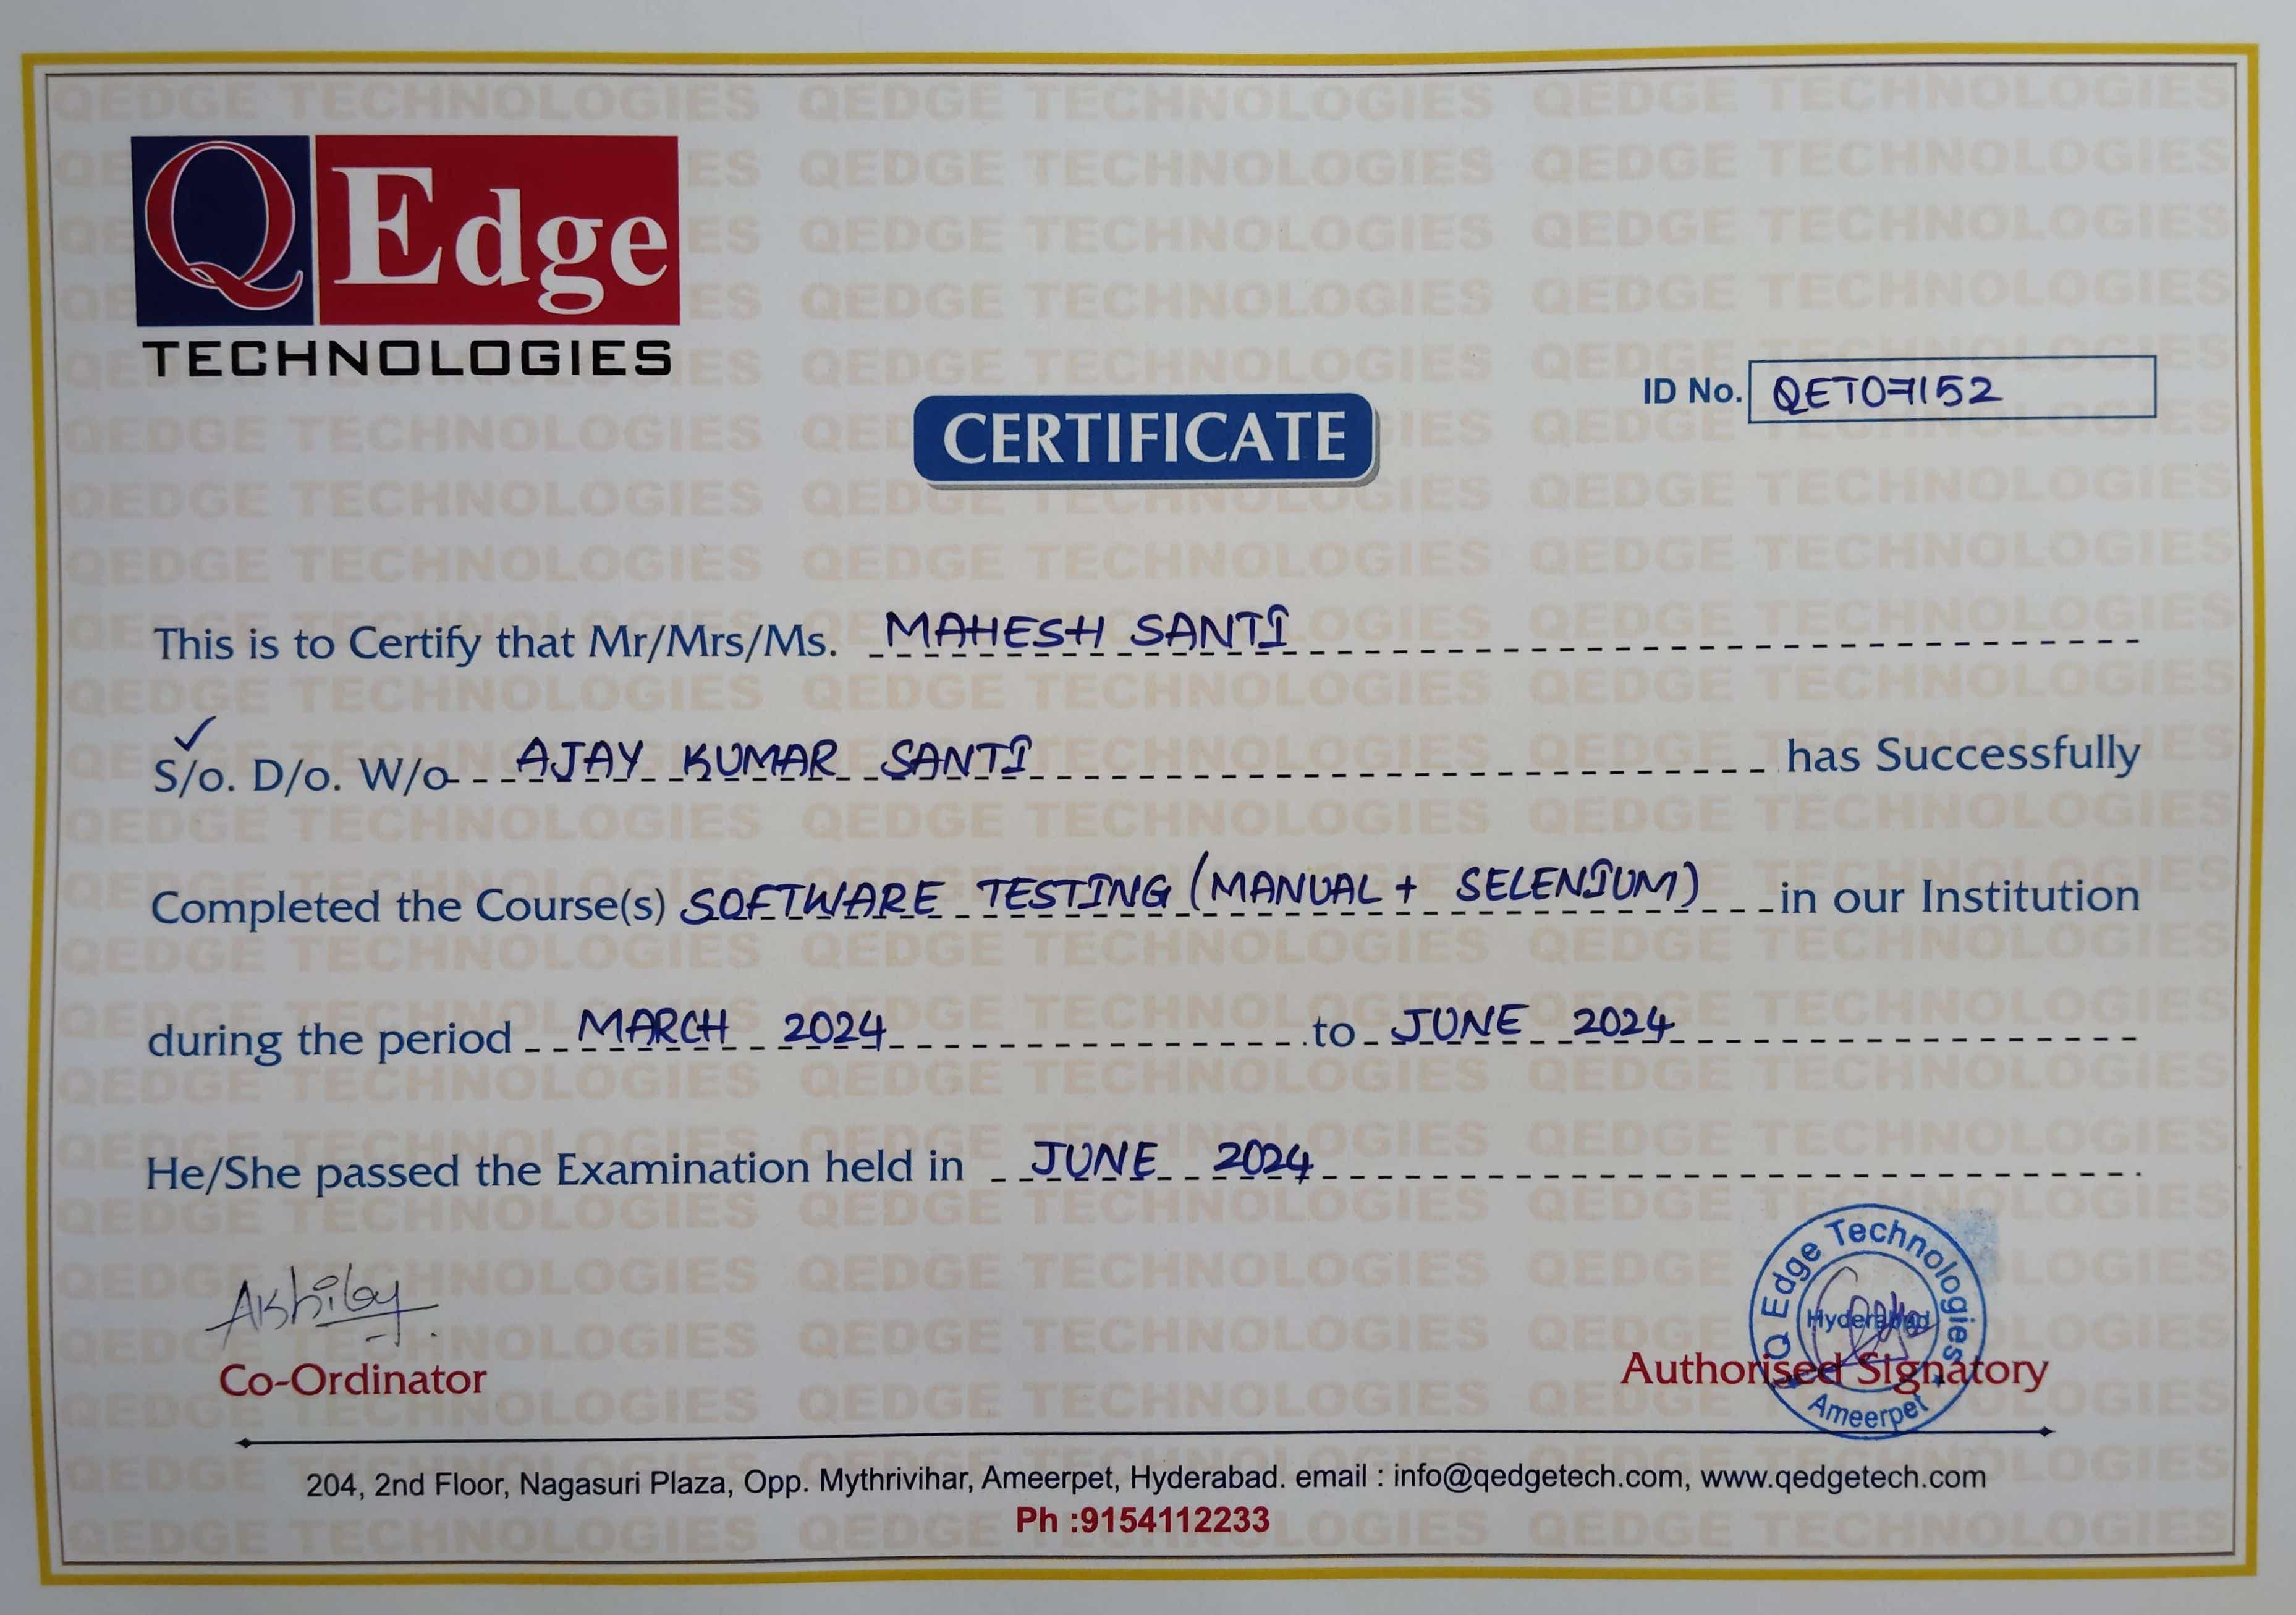 QEdge
TECHNOLOGIES
ID No. QET07152
CERTIFICATE
This is to Certify that Mr/Mrs/Ms. MAHESH SANTI
S/o. D/o. W/o AJAY KUMAR SANTI has Successfully
Completed the Course(s) SOFTWARE TESTING (MANUAL + SELENIUM) in our Institution
during the period MARCH 2024 to JUNE 2024
He/She passed the Examination held in JUNE 2024
Co-Ordinator
Q Edge Technologies
Hyderabad
Authorised Signatory
Ameerpet
204, 2nd Floor, Nagasuri Plaza, Opp. Mythrivihar, Ameerpet, Hyderabad. email : info@qedgetech.com, www.qedgetech.com
Ph :9154112233